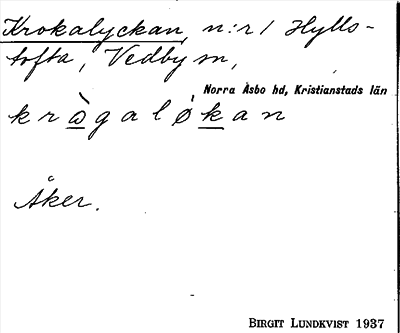 Krokalyckan, n:r 1 Hylls-
tofta, Vedby sn,
Norra Åsbo hd, Kristianstads län
kràgaløkan
Åker.
BIRGIT LUNDKVIST 1937